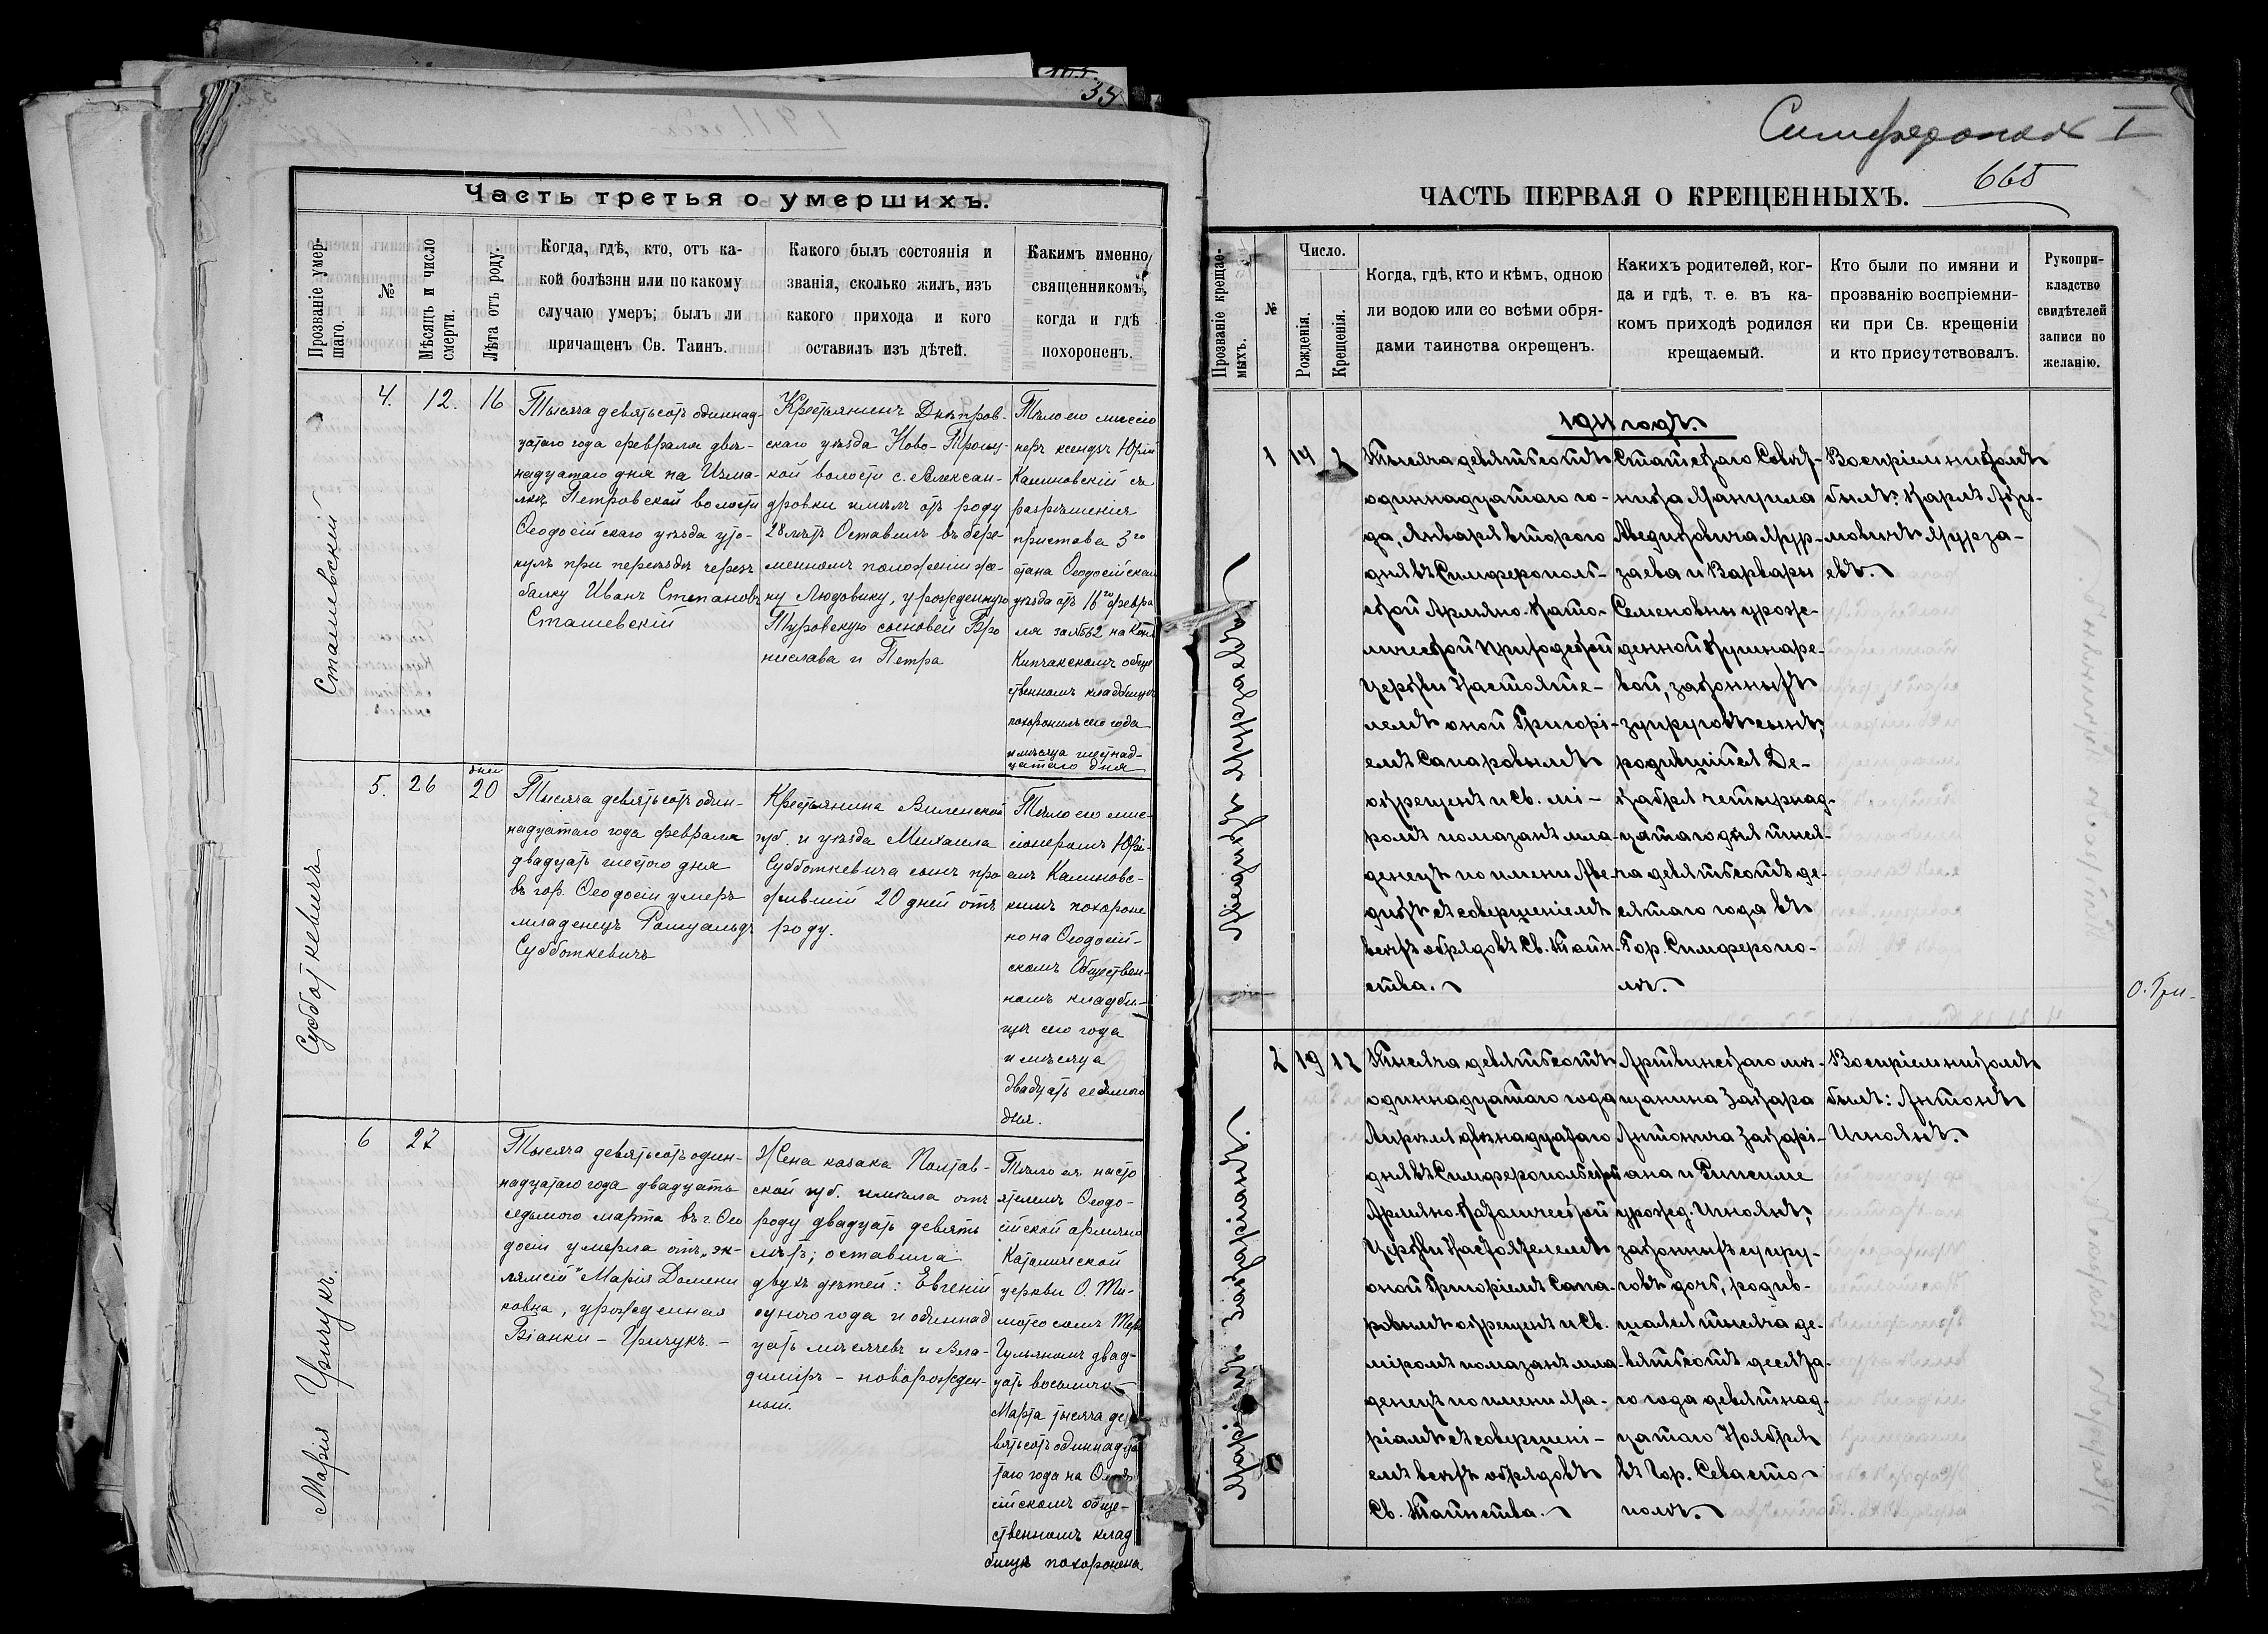 35
Часть третья о умершихъ.
Прозваніе умер-
шаго.
№
Мѣсяцъ и число
смерти.
Лѣта отъ роду.
Когда, гдѣ, кто, отъ ка-
кой болѣзни или по какому
случаю умеръ; былъ ли
причащенъ Св. Таинъ.
Какого былъ состоянія и
званія, сколько жилъ, изъ
какого прихода и кого
оставилъ изъ дѣтей.
Какимъ именно
священникомъ,
когда и гдѣ
похороненъ.
Сташевскій
4.
12.
16
Тысяча девятьсотъ одиннад-
цатаго года февраля двѣ-
надцатаго дня на Изма-
Петровской волости
Ѳеодосійскаго уѣзда уто-
нулъ при переѣздѣ черезъ
балку Иванъ Степановъ
Сташевскій
Крестьянинъ Днѣпров-
скаго уѣзда Ново-Троиц-
кой волости с. Алексан-
дровки имѣлъ отъ роду
28 лѣтъ Оставилъ въ бере-
менномъ положеніи же-
ну Людовику, урожденную
Туровскую сыновей Бро
нислава и Петра
Тѣло его миссіо
неръ ксендзъ Юрій
Калиновскій съ
разрѣшенія
пристава 3го
стана Ѳеодосійскаго
уѣзда отъ 16го февра
ля за №562 на
Кипчакскомъ обще
ственномъ кладбищѣ
похоронилъ сего года
и мѣсяца шестнад-
цатаго дня
Субботкевичъ
5.
26
дней
20
Тысяча девятьсотъ один-
надцатаго года февраля
двадцать шестого дня
въ гор. Ѳеодосіи умеръ
младенецъ Ромуальдъ
Субботкевичъ
Крестьянина Виленской
губ. и уѣзда Михаила
Субботкевича сынъ про
жившій 20 дней отъ
роду.
Тѣло его мис-
сіонеромъ Юрі-
емъ Калиновс-
кимъ похороне
но на Ѳеодосій-
скомъ Обществен-
номъ кладби-
щѣ сего года
и мѣсяца
двадцать седьмого
дня.
Марія Цричукъ.
6
27
Тысяча девятьсотъ один-
надцатаго года двадцать
седьмого марта въ г. Ѳео
досіи умерла отъ „эк-
лямсіи" Марія Домени
ковна, урожденная
Біанки - Цричукъ. -
Жена козака Полтав-
ской губ. имѣла отъ
роду двадцать девять
лѣтъ; оставила
двухъ дѣтей: Евгеній
одного года и одиннад
цать мѣсяцевъ и Вла-
димиръ - новорожден-
ный.
Тѣло ея насто
ятелемъ Ѳеодо-
сійской армяно
Католической
церкви О. Ти-
мотеосомъ
двад-
цать восьмого
Марта тысяча де
вятьсотъ одиннадца
таго года на Ѳеодо
сійскомъ обще-
ственномъ клад
бищѣ похоронена
Симферополь I
665
ЧАСТЬ ПЕРВАЯ О КРЕЩЕННЫХЪ.
Прозваніе крещае-
мыхъ.
№
Число.
Рожденія.
Крещенія.
Когда, гдѣ, кто и кѣмъ, одною
ли водою или со всѣми обря-
дами таинства окрещенъ.
Какихъ родителей, ког-
да и гдѣ, т. е. въ ка-
комъ приходѣ родился
крещаемый.
Кто были по имяни и
прозванію воспріемни-
ки при Св. крещеніи
и кто присутствовалъ.
Рукопри-
кладство
свидѣтелей
записи по
желанію.
1911 годъ.
Аведикъ Мурзаевъ
1
14
2
Тысяча девятьсотъ
одиннадцатаго го-
да, Января второго
дня въ Симферополь-
ской Армяно-Като-
лической Приходской
Церкви Настояте-
лемъ оной Григорі-
емъ Сапаровымъ
окрещенъ и Св. мі-
ромъ помазанъ мла-
денецъ по имени Аве-
дикъ съ совершеніемъ
всѣхъ обрядовъ Св. Таин-
ства.
Статскаго Совѣт-
ника Мануила
Аведиковича Мур-
заева и Варвары
Семеновны урож-
денной Кушнаре-
вой, законныхъ
супруговъ сынъ,
родившійся Де-
кабря четырнад-
цатаго дня тыся-
ча девятьсотъ де-
сятаго года въ
Гор. Симферопо-
лѣ.
Воспріемникомъ
былъ: Карлъ Аки-
мовичъ Мурза-
евъ.
О. Гри-
Маріамъ Закаріанъ.
2
19
12
Тысяча девятьсотъ
одиннадцатаго года
Апрѣля двѣнадцатаго
дня въ Симферопольской
Армяно-Католической
Церкви Настоятелемъ
оной Григоріемъ Сапа-
ровымъ окрещенъ и Св.
міромъ помазанъ мла-
денецъ по имени Ма-
ріамъ съ совершені-
емъ всѣхъ обрядовъ
Св. Таинства.
Артвинскаго мѣ-
щанина Закара
Антонича Закарі-
ана и Рипсиме
урожд. Игноянъ,
законныхъ супру-
говъ дочь, родив-
шаяся тысяча де-
вятьсотъ десята-
го года девятнад-
цатаго Ноября
въ Гор. Севасто-
полѣ.
Воспріемникомъ
былъ: Антонъ
Игноянъ.